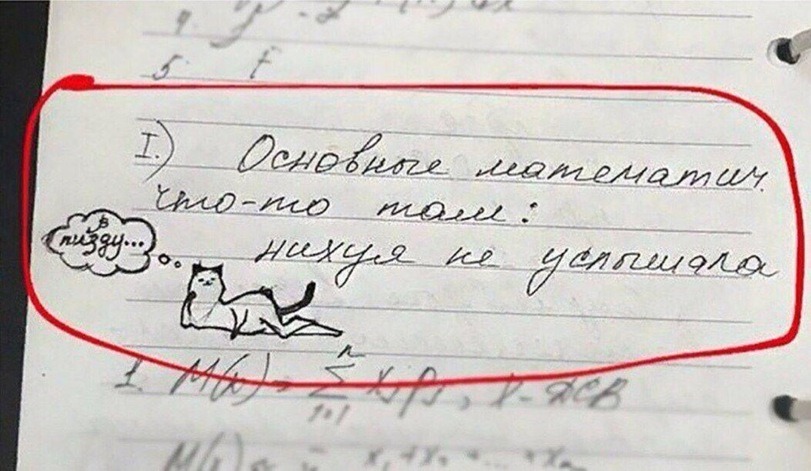 5
I.) Основные математич.
что-то там:
нихуя не услышала
в
пизду...
1. M(x) = ∑ xj pj, X - ДСВ
n
j=1